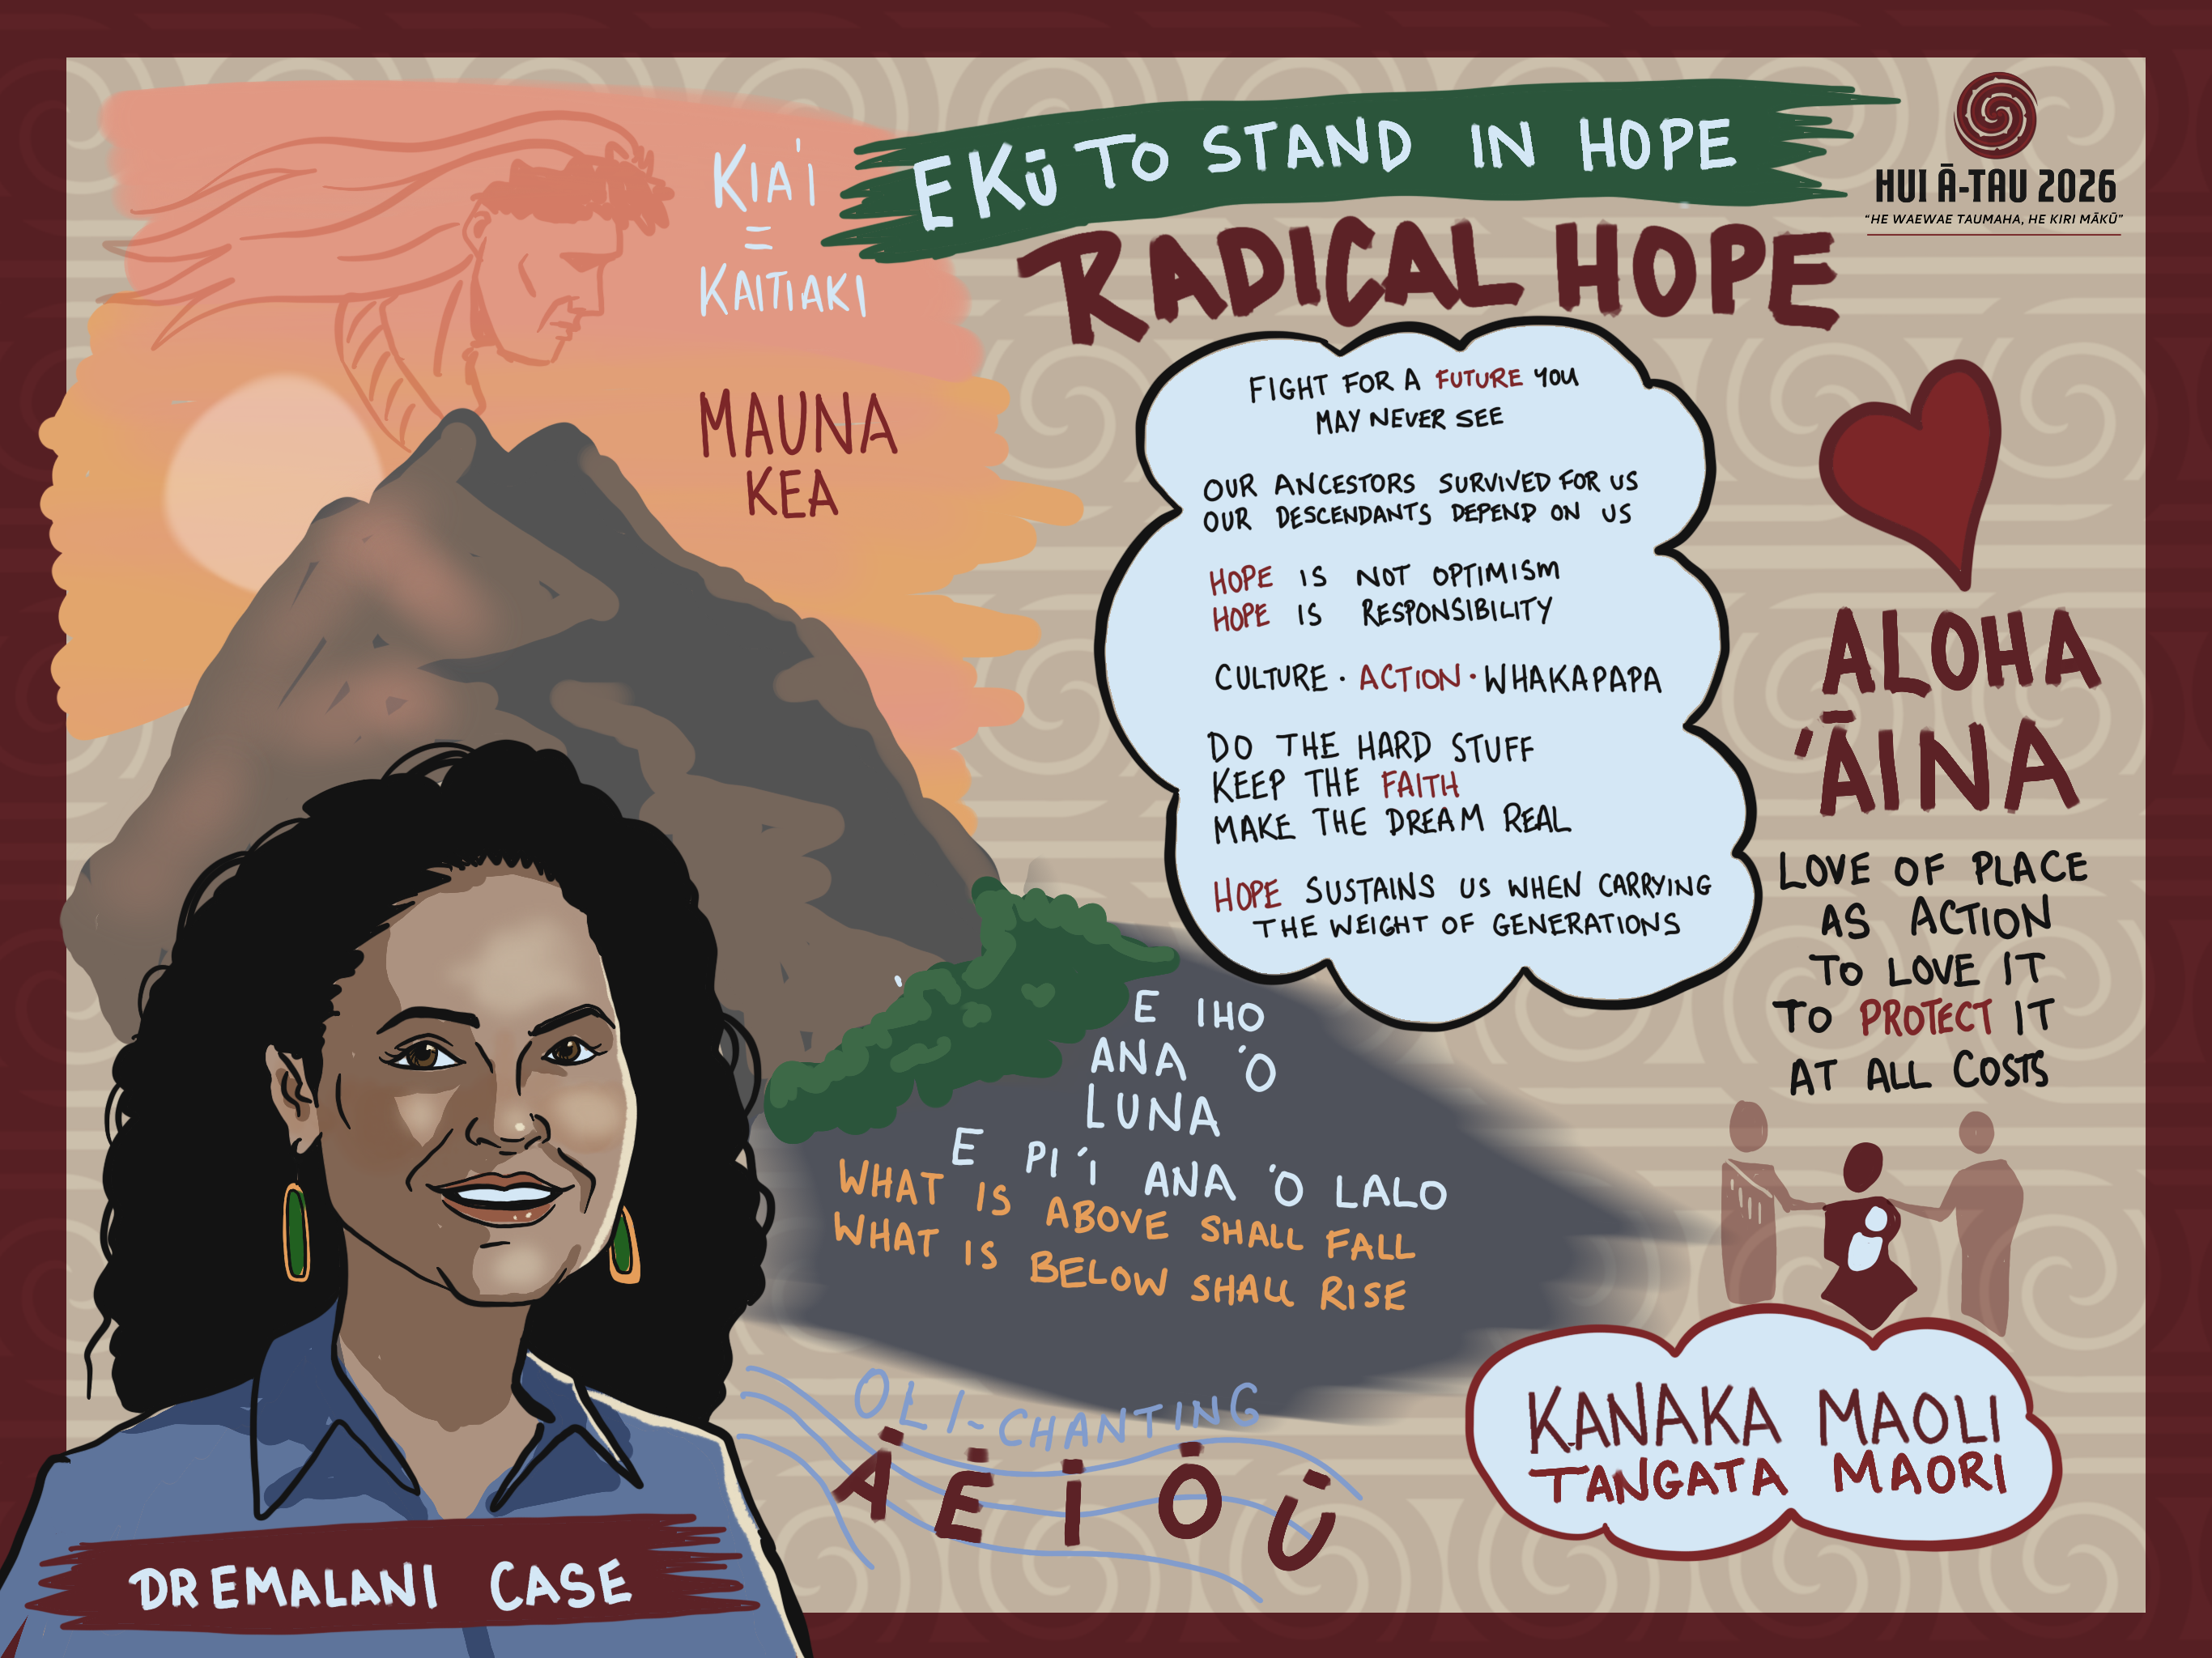 EKŪ TO STAND IN HOPE
RADICAL HOPE
HUI Ā-TAU 2026
"HE WAEWAE TAUMAHA, HE KIRI MĀKŪ"
KIA'I
=
KAITIAKI
MAUNA
KEA
FIGHT FOR A FUTURE YOU
MAY NEVER SEE
OUR ANCESTORS SURVIVED FOR US
OUR DESCENDANTS DEPEND ON US
HOPE IS NOT OPTIMISM
HOPE IS RESPONSIBILITY
CULTURE · ACTION · WHAKAPAPA
DO THE HARD STUFF
KEEP THE FAITH
MAKE THE DREAM REAL
HOPE SUSTAINS US WHEN CARRYING
THE WEIGHT OF GENERATIONS
ALOHA
'ĀINA
LOVE OF PLACE
AS ACTION
TO LOVE IT
TO PROTECT IT
AT ALL COSTS
E IHO
ANA 'O
LUNA
E PI'I ANA 'O LALO
WHAT IS ABOVE SHALL FALL
WHAT IS BELOW SHALL RISE
OLI - CHANTING
Ā Ē Ī Ō Ū
KANAKA MAOLI
TANGATA MAORI
DR EMALANI CASE